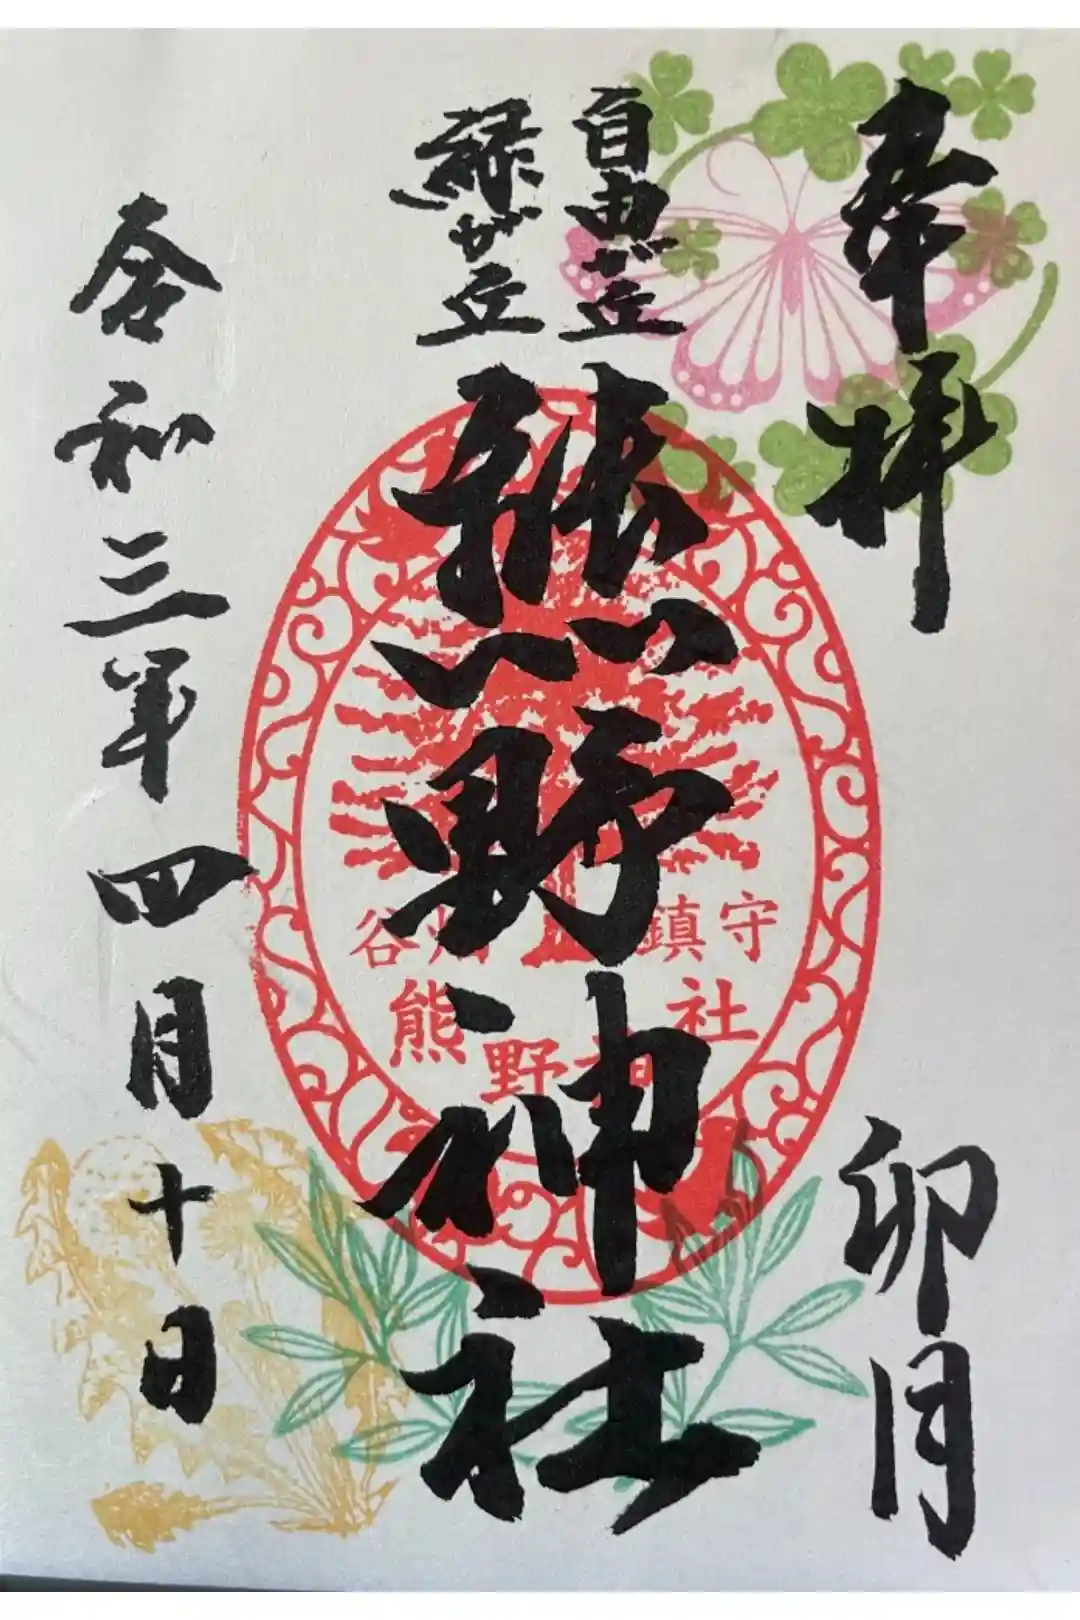 奉拝
卯月
自由が丘
緑が丘
熊野神社
谷畑
鎮守
熊野神社
令和三年四月十日